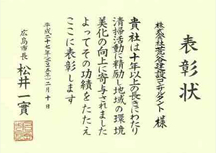 表彰状
株式会社荒谷建設コンサルタント 様
貴社は十年以上の長きにわたり
清掃活動に精励し地域の環境
美化の向上に寄与されました
よってその功績をたたえ
ここに表彰します
平成二十七年
十日
広島市長 松井一實